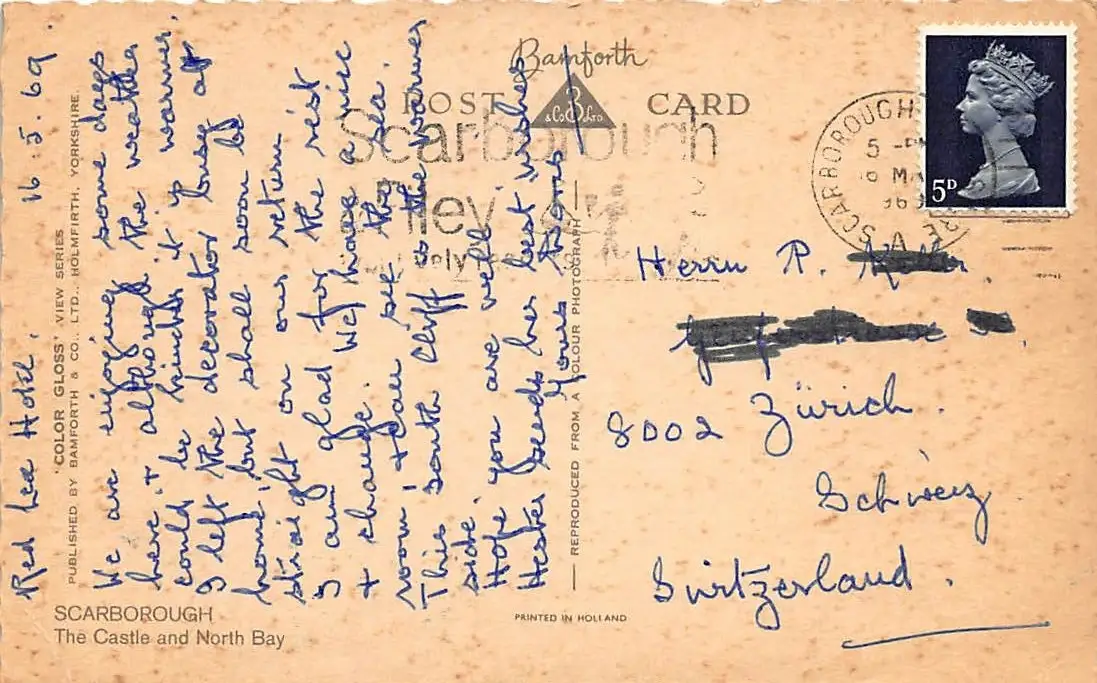 Red Lea Hotel. 16.5.69.
We are enjoying some days
here + although the weather
could be kinder it is warmer.
I left the decorator busy at
home, but shall soon be
straight on our return.
I am glad for the rest
+ change. We have a nice
room + can see the sea.
This South Cliff is the warmer
side.
Hope you are well.
Hester sends her best wishes
Yours
'COLOR GLOSS' VIEW SERIES
PUBLISHED BY BAMFORTH & CO., LTD., HOLMFIRTH, YORKSHIRE.
SCARBOROUGH
The Castle and North Bay
Bamforth
POST CARD
B
& Co LTD
Scarborough
REPRODUCED FROM A COLOUR PHOTOGRAPH
PRINTED IN HOLLAND
SCARBOROUGH
A
5D
Herrn R.
8002 Zürich.
Schweiz
Switzerland.